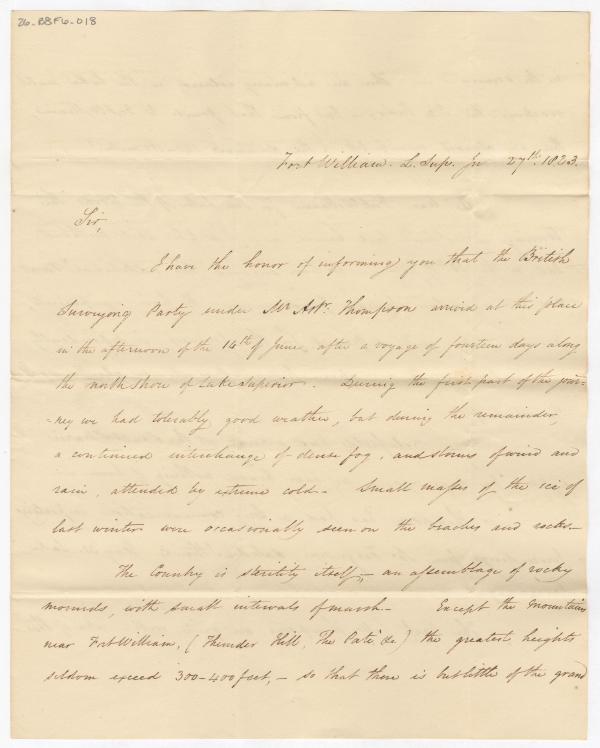 26-BBF6-018
Fort William. L. Sup. Ju 27th. 1823.
Sir,
I have the honor of informing you that the British
Surveying Party under Mr Astr. Thompson arrived at this place
in the afternoon of the 14th of June after a voyage of fourteen days along
the north shore of Lake Superior. During the first part of the jour-
-ney we had tolerably good weather, but during the remainder,
a continued interchange of dense fog, and storms of wind and
rain, attended by extreme cold. Small masses of the ice of
last winter were occasionally seen on the beaches and rocks.–
The Country is sterility itself;– an assemblage of rocky
mounds, with small intervals of marsh.– Except the mountains
near Fort William, (Thunder Hill, The Paté &c) the greatest heights
seldom exceed 300–400 feet,– so that there is but little of the grand